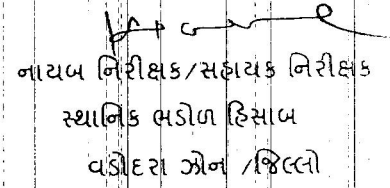 નાયબ નિરીક્ષક/સહાયક નિરીક્ષક
સ્થાનિક ભડોળ હિસાબ
વડોદરા ઝોન /જિલ્લો